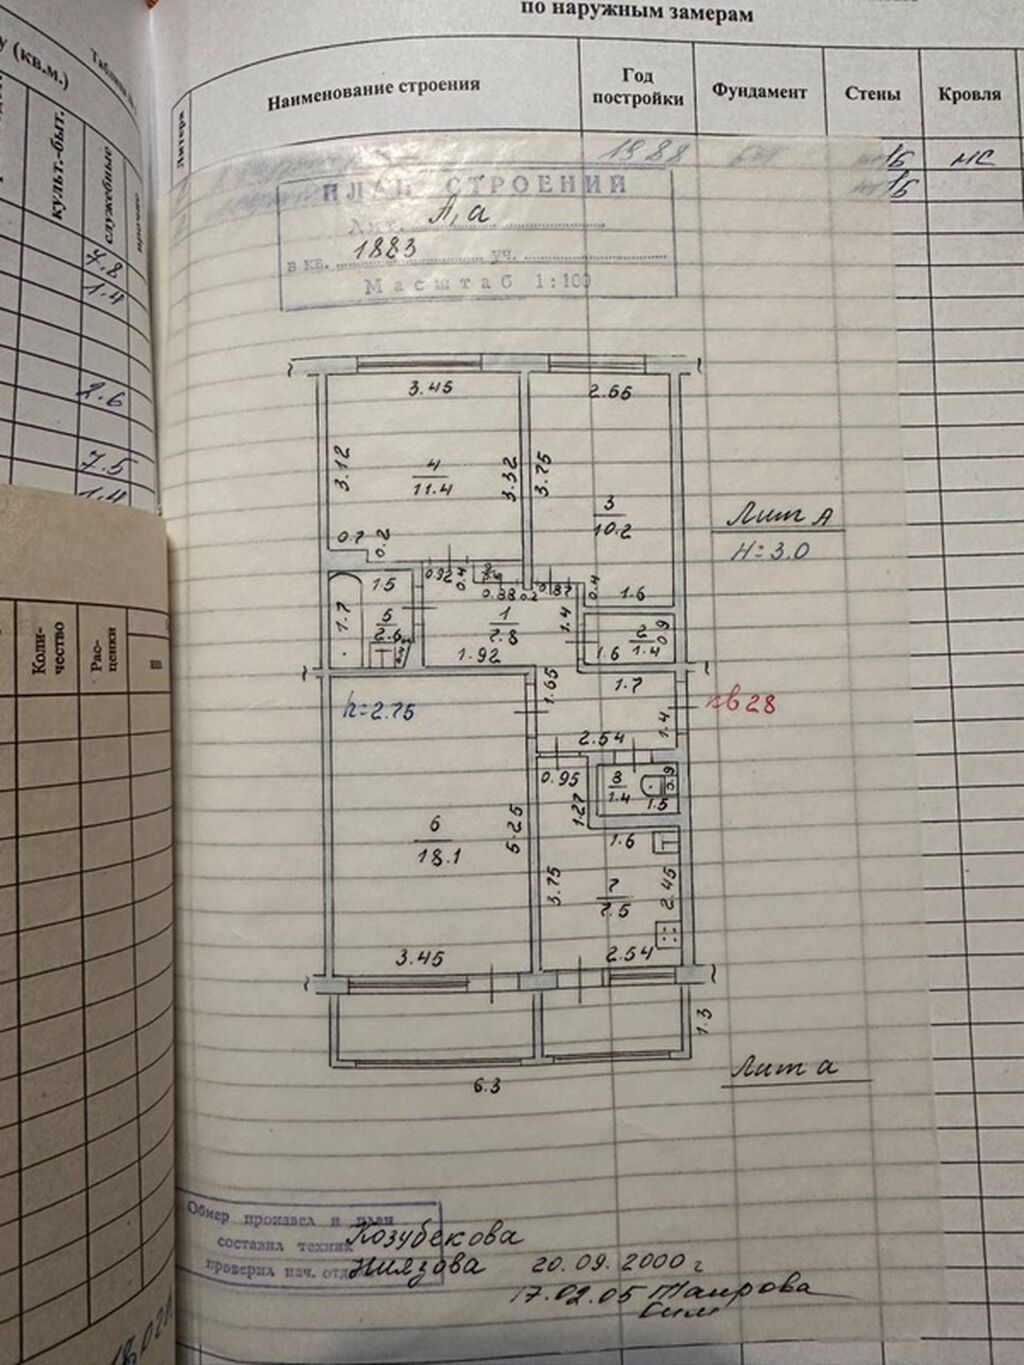 по наружным замерам
у (кв.м.)
культ.-быт.
служебные
7.8
1.4
2.6
7.5
1.4
Литера
Наименование строения
Год постройки
Фундамент
Стены
Кровля
1988
1Б
мс
1Б
ПЛАН СТРОЕНИЙ
Лит. А, а
в кв. 1883 уч.
Масштаб 1:100
3.45
2.65
3.12
4
11.4
3.32
3.75
3
10.2
Лит А
H=3.0
0.7
0.2
0.92
0.4
0.88
0.2
0.87
0.4
1.6
1.5
1.7
5
2.6
1
7.8
1.92
1.4
2
1.4
0.9
1.6
h=2.75
1.65
1.7
1.4
кв 28
2.54
0.95
8
1.4
0.9
1.5
1.27
6
18.1
5.25
1.6
3.75
7
7.5
2.45
3.45
2.54
1.3
6.3
Лит а
Коли-
чество
Рас-
ценки
Обмер произвел и план
составил техник Козубекова
проверил нач. отд. Ниязова 20.09.2000 г
17.02.05 Таирова